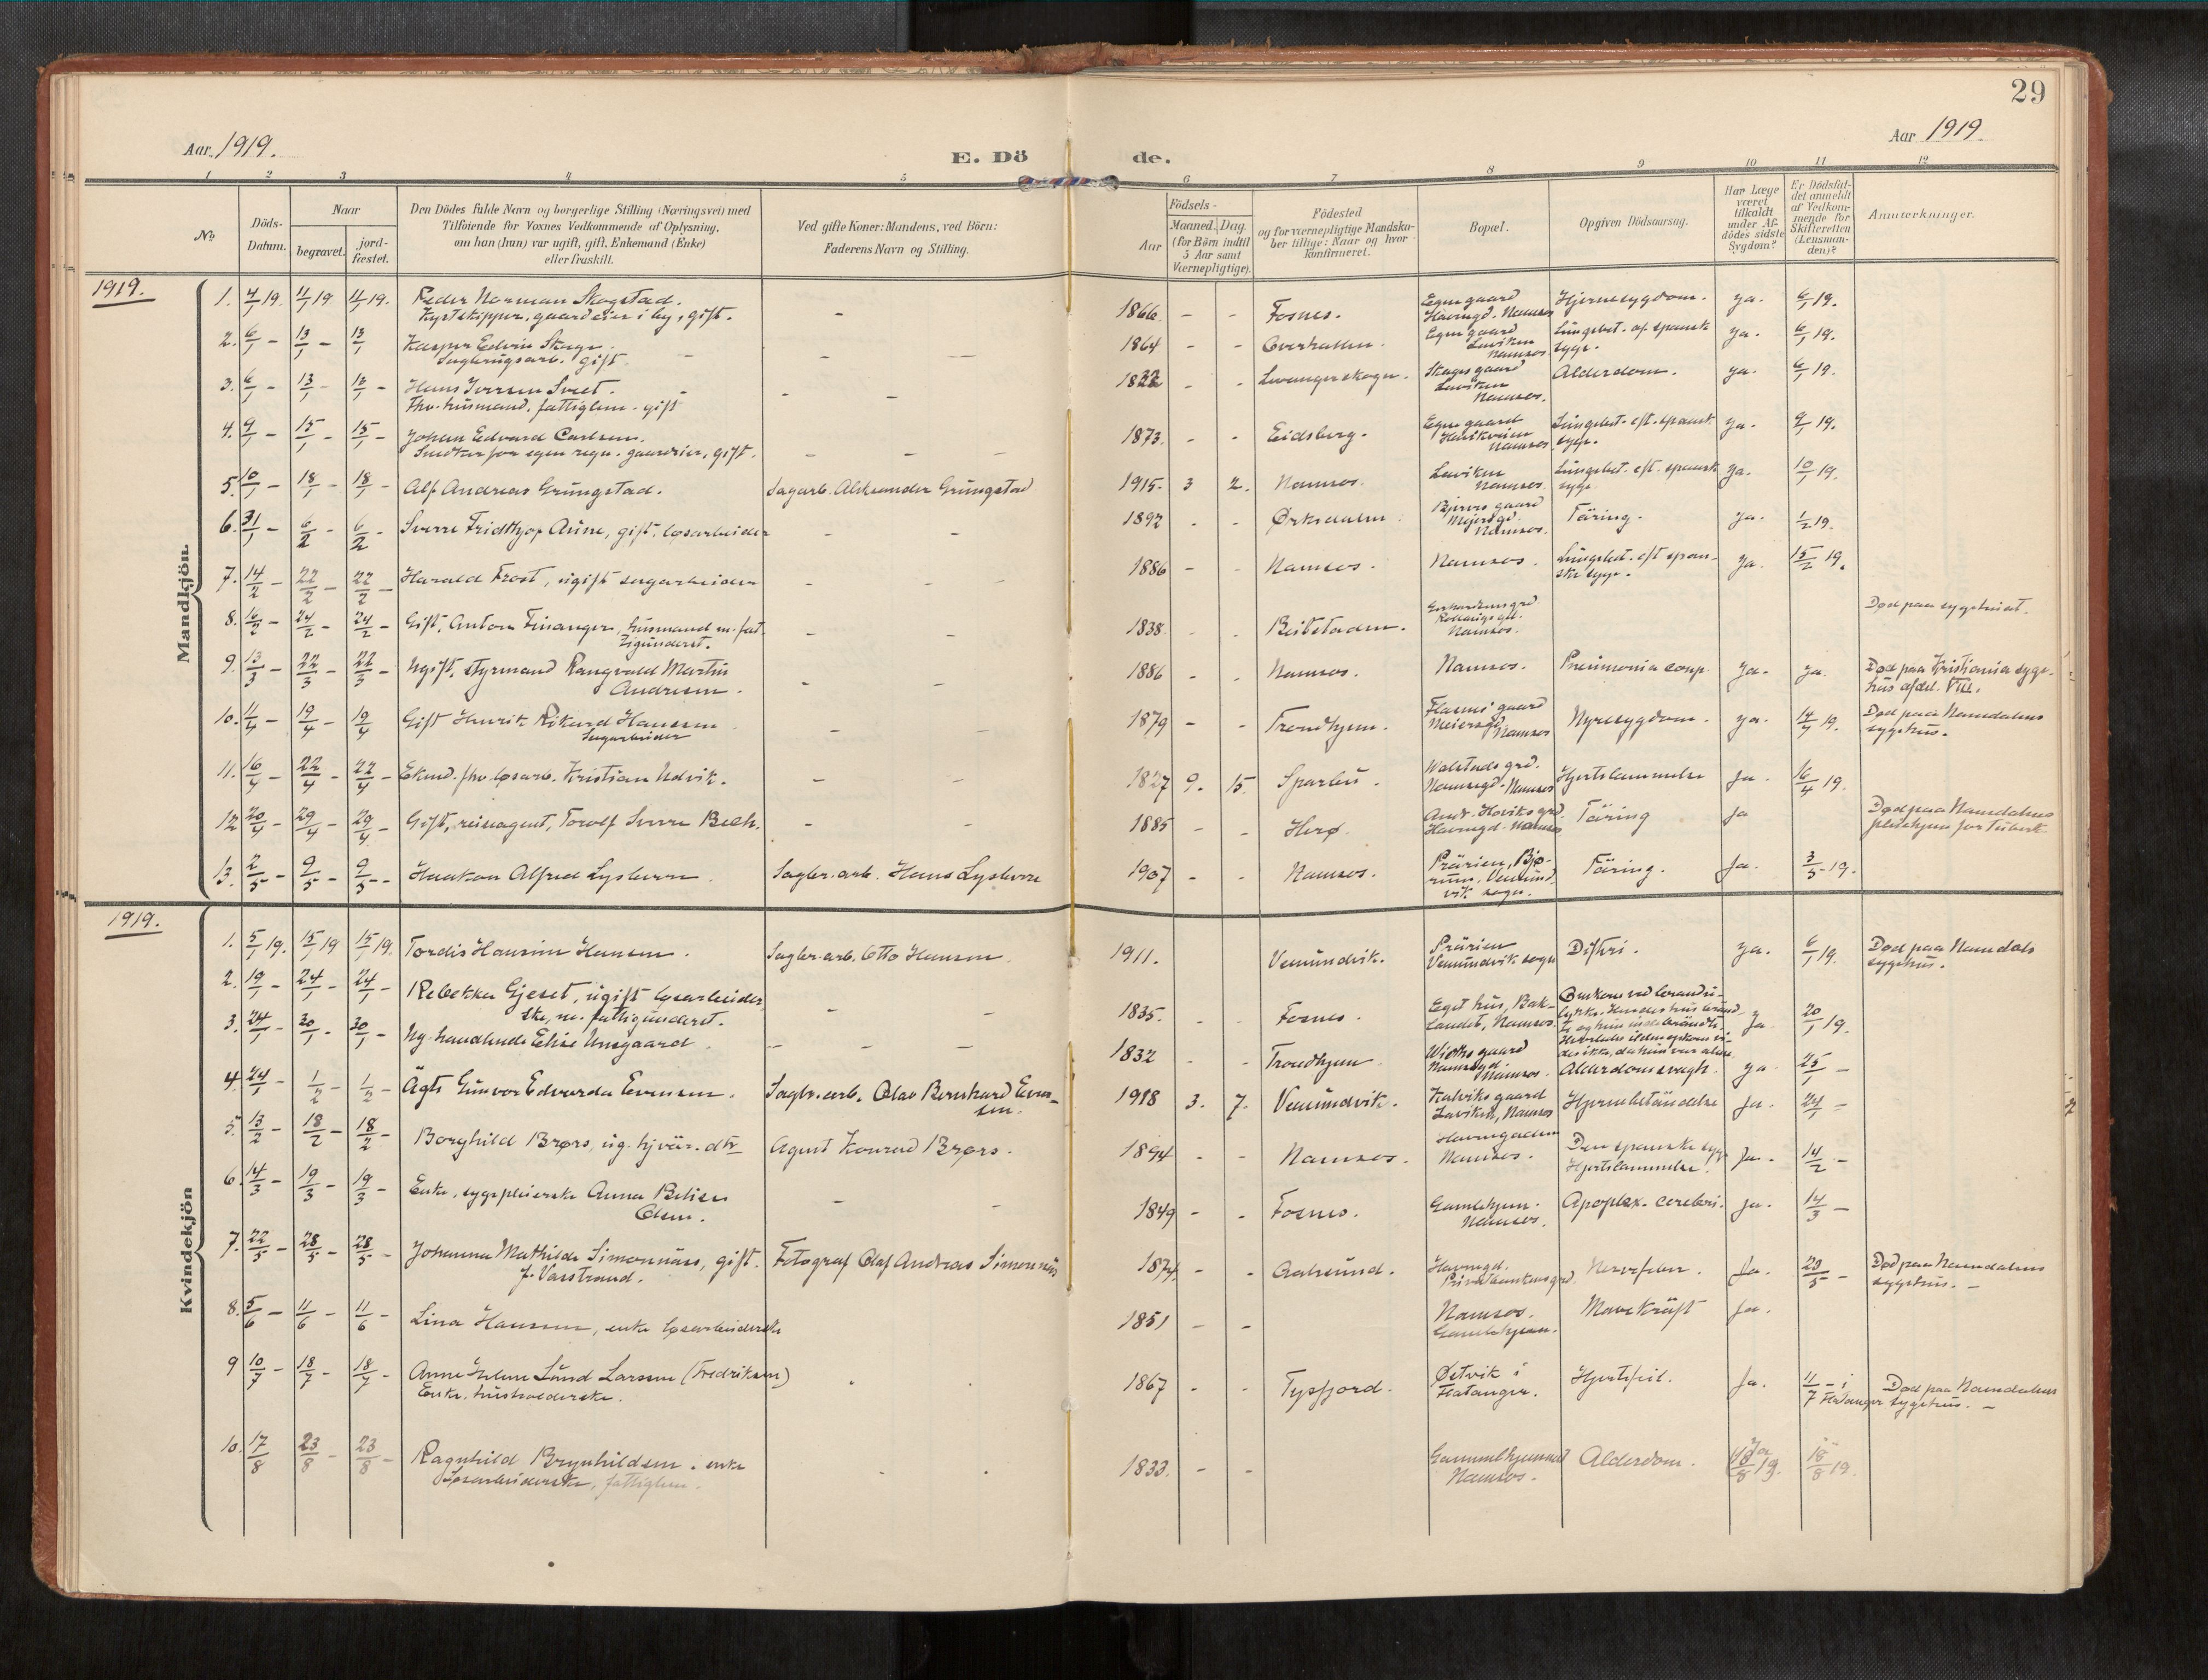 29
Aar 1919.
Aar 1919.
E. Dö de.
1 2 3 4 5 6 7 8 9 10 11 12
No
Döds-Datum.
Naar
begravet.
jord-fæstet.
Den Dödes fulde Navn og borgerlige Stilling (Næringsvei) med
Tilföiende for Voxnes Vedkommende af Oplysning,
om han (hun) var ugift, gift, Enkemand (Enke)
eller fraskilt.
Ved gifte Koner: Mandens, ved Börn:
Faderens Navn og Stilling.
Födsels-
Aar
Maaned. Dag.
(for Börn indtil
5 Aar samt
Værnepligtige).
Födested
og for værnepligtige Mandska-
ber tillige: Naar og hvor
konfirmeret.
Bopæl.
Opgiven Dödsaarsag.
Har Læge
været
tilkaldt
under Af-
dödes sidste
Sygdom?
Er Dödsfal-
det anmeldt
af Vedkom-
mende for
Skifteretten
(Lensman-
den)?
Anmærkninger.
1919.
Mandkjön
1. 4/1 19. 11/1 19 11/1 19. Peder Norman Skogstad. - 1866 - - Fosnes. Egen gaard Hjernesygdom. ja. 6/1 19.
Kystskipper, gaardeier i by, gift. Havnegd. Namsos
2. 6/1 - 13/1 - 13/1 Kasper Edvin - 1864 - - Overhallen. Egen gaard Lungebet. af spansk ja. 6/1 19.
gift. Laviken Namsos syge.
3. 6/1 - 13/1 - 13/1 - Hans Iversen - - 1822 - - Levangerskogn. Skages gaard Alderdom. ja. 6/1 19.
Fhv. husmand, fattiglem. gift Laviken Namsos.
4. 9/1 - 15/1 - 15/1 - Johan Edvard Carlsen. 1873. - - Eidsberg. Egen gaard Lungebet. eft. spansk ja. 9/1 19.
Snedker for egen regn. gaardeier, gift. - - - Namsos syge.
5. 10/1 - 18/1 - 18/1 - Alf Andreas Grungstad. Sagarb. Aleksander Grungstad 1915. 3 2. Namsos. Laviken Namsos. Lungebet. eft. spansk syge ja. 10/1 19.
6. 31/1 - 6/2 - 6/2 - Sverre Fridthjof Aune, gift, løsarbeider - - 1892 - - Ørkedalen gaard Meiergd. Namsos. Täring. ja. 1/2 19.
7. 14/2 - 22/2 - 22/2 - Harald Frost, ugift sagarbeider - - - 1886 - - Namsos. Namsos. Lungebet. eft spanske syge. ja. 15/2 19.
8. 16/2 - 24/2 - 24/2 - Gift, Anton Finanger, husmand m. fattigunderst. - - 1838 - - Beitstaden. Namsos. Død paa sygehuset.
9. 13/3 - 22/3 - 22/3 - Ugift, styrmand Rangvald Martin - - 1886 - - Namsos. Namsos. Pneumonia coup. ja. ja. Død paa Kristiania syge-
Andresen. hus afdel. VIII.
10. 11/4 - 19/4 - 19/4 Gift Henrik Rikard Hanssen - - 1879 - - Trondhjem. gaard Nyresygdom. ja. 14/4 19. Død paa Namdalens
Sagarbeider Meiergd Namsos sygehus.
11. 16/4 - 22/4 - 22/4 - Ekmd. fhv. løsarb. Kristian Udvik. - - 1827 9. 15. Sparbu. Walstads grd. Hjertelammelse Ja. 16/4 19.
Namsos
12 20/4 - 29/4 - 29/4 - Gift, reiseagent, Torolf Sverre Bech. - - 1885 - - Herø. Havnegd. Namsos Täring Ja Død paa Namdalens
pleiehjem for Tuberk.
13. 2/5 - 9/5 - 9/5 - Haakon Alfred Lysberre Sagbr. arb. Hans Lysberre 1907 - - Namsos. Prärien, Bjø- Täring. Ja. 3/5 19.
rum, Vemund-
vik sogn.
1919.
Kvindekjön
1. 5/1 19. 15/1 19 15/1 19. Tordis Hansine Hansen. Sagbr. arb. Otto Hansen. 1911. Vemundvik. Prärien Difteri. ja. 6/1 19. Død paa Namdals
Vemundvik sogn sygehus.
2. 19/1 - 24/1 - 24/1 - Rebekka Gjeset, ugift løsarbeider- - - 1835. - - Fosnes. Eget hus, Bak- Omkom ved brandu- ja. 20/1 19.
ske, m. fattigunderst. landet, Namsos. lykke.
3. 24/1 - 30/1 - 30/1 - Ug. handlende Elise Unsgaard - - - 1832 - - Trondhjem gaard Namsos. Alderdomssvagh. ja 25/1 -
4. 24/1 - 1/2 - 1/2 - Ägte Gunvor Edvarda Evensen. Sagbr. arb. Olav Bernhard Even- 1918 3. 7. Vemundvik. Kalviks gaard Hjernebetändelse Ja. 24/1 -
sen. Laviken, Namsos
5. 13/2 - 18/2 - 18/2 - Borghild Brørs, ug. hjvär. dtr Agent Konrad Brørs. 1894 - - Namsos. Havnegaden Den spanske syge Ja. 14/2 -
Namsos. Hjertelammelse.
6. 14/3 - 19/3 - 19/3 - Enke, sygepleierske Anna - - 1849 - - Fosnes. Gamlehjem. Apoplex. cerebri. Ja. 14/3 -
Olsen. Namsos.
7. 22/5 - 28/5 - 28/5 - Johanna Mathilde Simonnäss, gift. Fotograf Olaf Andreas Simonnäs 1874. - - Aalesund. Havnegd. Nervefeber. Ja. 23/5 - Død paa Namdalens
f. Vasstrand. Privatbankens grd. sygehus. -
8. 5/6 - 11/6 - 11/6 - Lina Hanssen, enke løsarbeiderske 1851 - - Namsos. Mavekräft Ja.
Gamlehjem.
9 10/7 - 18/7 - 18/7 - Anne Lund Larssen (Fredriksen) 1867 - - Tysfjord. Østvik i Hjertefeil. Ja. 11/7 - i Død paa Namdalens
Enke, husholderske. Flatanger. Flatanger sygehus. -
10. 17/8 23/8 - 23/8 - Ragnhild Brynhildsen. enke 1833. - - Gammelhjemmet Alderdom. Ja 18/8 19. 18/8 19.
Løsarbeiderske, fattiglem. Namsos.